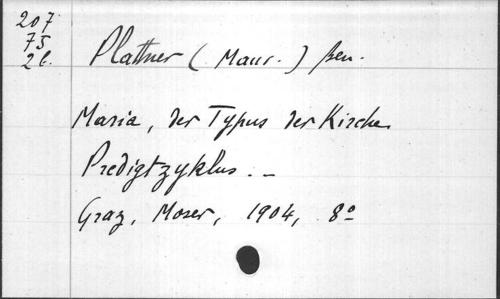 207
75
2b.
Plattner (Maur.) Ben.
Maria, der Typus der Kirche.
Predigtzyklus. -
Graz, Moser, 1904, 8°